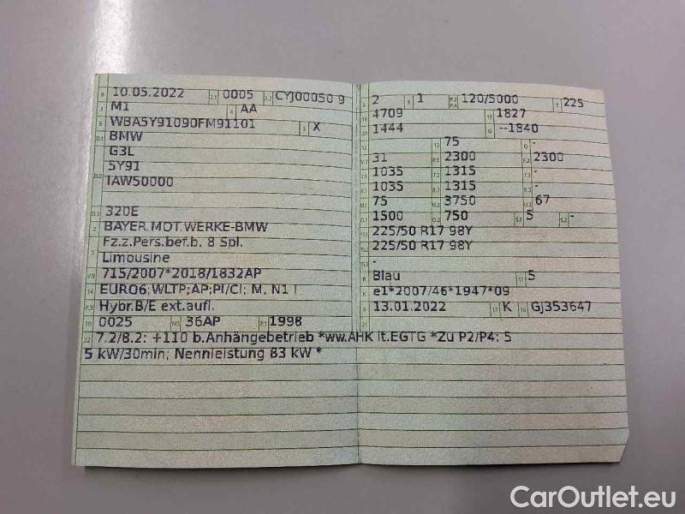 10.05.2022 0005 CYJ00050 9
M1 AA
WBA5Y91090FM91101 X
BMW
G3L
5Y91
IAW50000
320E
BAYER.MOT.WERKE-BMW
Fz.z.Pers.bef.b. 8 Spl.
Limousine
715/2007*2018/1832AP
EURO6;WLTP;AP;PI/CI; M, N1 I
Hybr.B/E ext.aufl.
0025 36AP 1998
2 1 120/5000 225
4709 1827
1444 --1840
75 -
31 2300 2300
1035 1315 -
1035 1315 -
75 3750 67
1500 750 5 -
225/50 R17 98Y
225/50 R17 98Y
-
Blau 5
e1*2007/46*1947*09
13.01.2022 K GJ353647
7.2/8.2: +110 b.Anhängebetrieb *ww.AHK lt.EGTG *Zu P2/P4: 5
5 kW/30min; Nennleistung 83 kW *
CarOutlet.eu